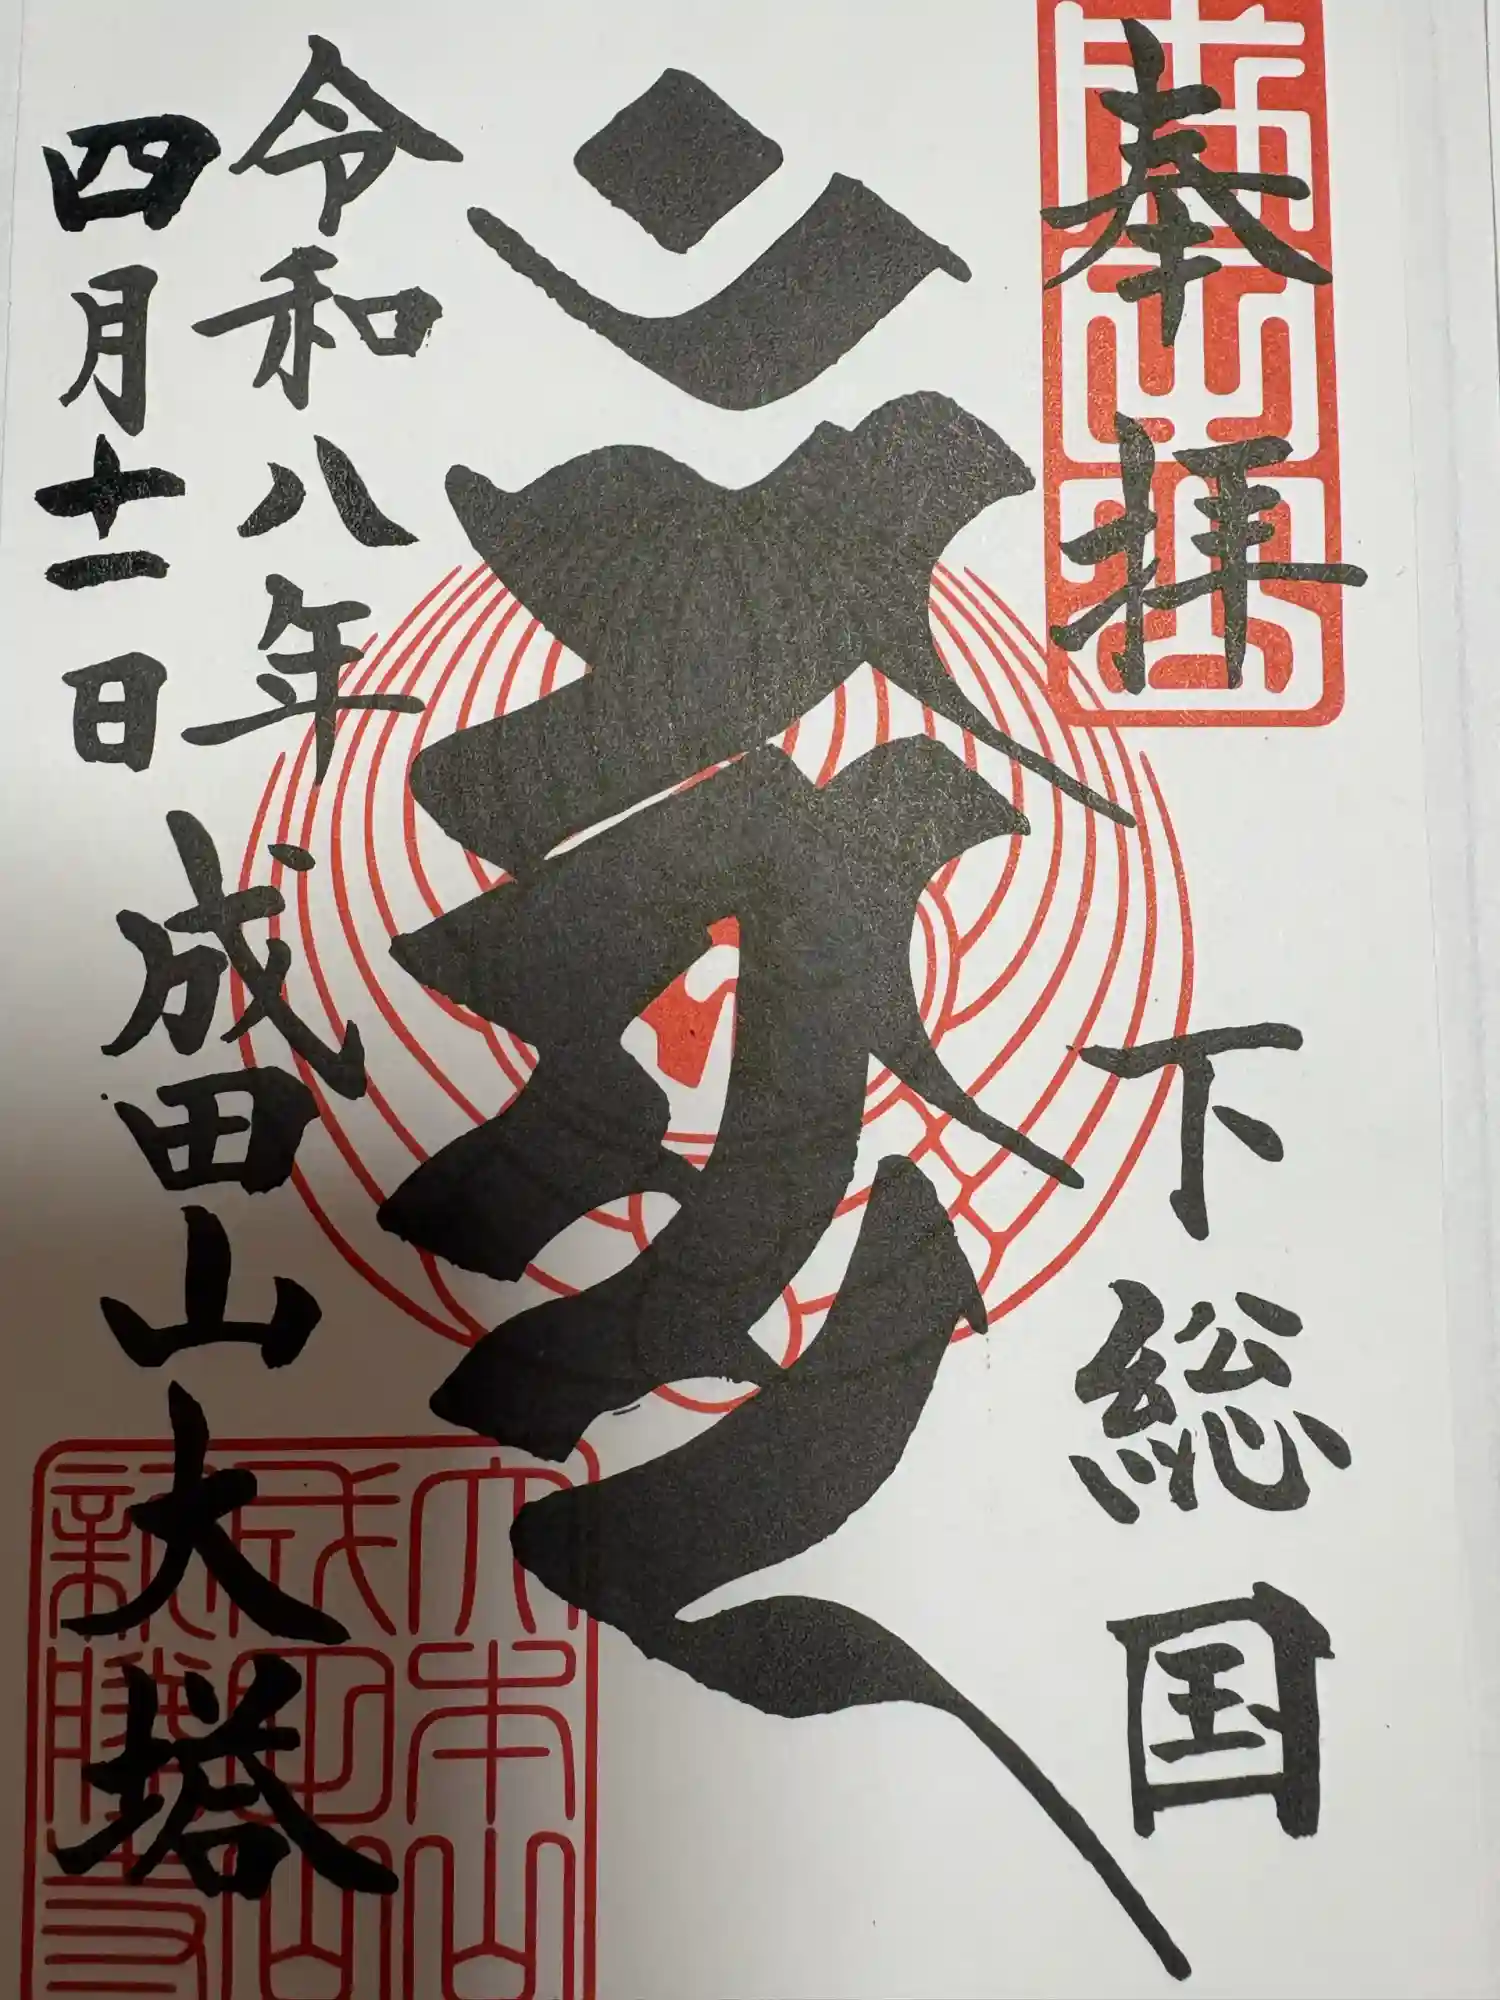 奉拝
下総国
令和八年
四月十一日
成田山大塔
成田山
大本山
成田山
新勝寺